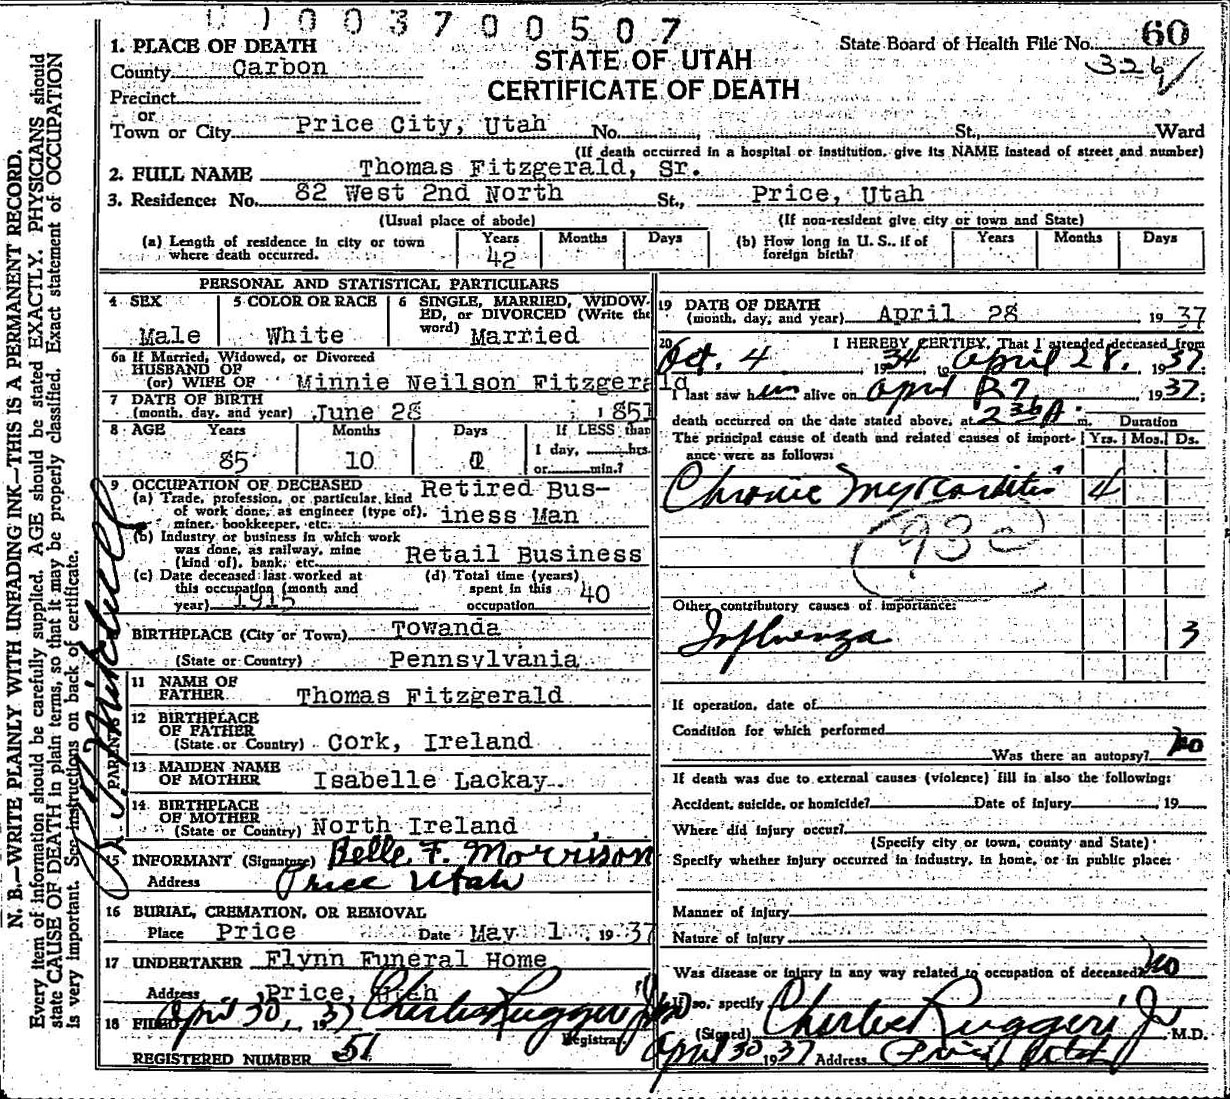 0 0 3 7 0 0 5 0 7
1. PLACE OF DEATH
County Carbon
STATE OF UTAH
CERTIFICATE OF DEATH
State Board of Health File No. 60
326
Precinct
or
Town or City Price City, Utah No. St., Ward
(If death occurred in a hospital or institution, give its NAME instead of street and number)
2. FULL NAME Thomas Fitzgerald, Sr.
3. Residence: No. 82 West 2nd North St., Price, Utah
(Usual place of abode) (If non-resident give city or town and State)
(a) Length of residence in city or town where death occurred. Years 42 Months Days
(b) How long in U. S., if of foreign birth? Years Months Days
PERSONAL AND STATISTICAL PARTICULARS
4 SEX Male
5 COLOR OR RACE White
6 SINGLE, MARRIED, WIDOWED, or DIVORCED (Write the word) Married
6a If Married, Widowed, or Divorced
HUSBAND OF
(or) WIFE OF Minnie Neilson Fitzgerald
7 DATE OF BIRTH
(month, day, and year) June 28 1851
8 AGE Years 85 Months 10 Days If LESS than
1 day, hrs.
or min.?
9 OCCUPATION OF DECEASED
(a) Trade, profession, or particular kind of work done, as engineer (type of), miner, bookkeeper, etc. Retired Business Man
(b) Industry or business in which work was done, as railway, mine (kind of), bank, etc. Retail Business
(c) Date deceased last worked at this occupation (month and year) 1915
(d) Total time (years) spent in this occupation 40
BIRTHPLACE (City or Town) Towanda
(State or Country) Pennsylvania
PARENTS
11 NAME OF FATHER Thomas Fitzgerald
12 BIRTHPLACE OF FATHER
(State or Country) Cork, Ireland
13 MAIDEN NAME OF MOTHER Isabelle Lackay
14 BIRTHPLACE OF MOTHER
(State or Country) North Ireland
15 INFORMANT (Signature) Belle F. Morrison
Address Price Utah
16 BURIAL, CREMATION, OR REMOVAL
Place Price Date May 1, 1937
17 UNDERTAKER Flynn Funeral Home
Address Price, Utah
18 FILED April 30, 1937 Charles Ruggeri Jr
Registrar.
REGISTERED NUMBER 51
19 DATE OF DEATH
(month, day, and year) April 28 1937
20 I HEREBY CERTIFY, That I attended deceased from
Oct. 4 1934 to April 28. 1937.
I last saw him alive on April 27 1937;
death occurred on the date stated above, at 2 36 A. m. Duration
The principal cause of death and related causes of importance were as follows: Yrs. Mos. Ds.
Chronic Myocarditis 4
93c
Other contributory causes of importance:
Influenza 3
If operation, date of
Condition for which performed
Was there an autopsy? No
If death was due to external causes (violence) fill in also the following:
Accident, suicide, or homicide? Date of injury 19
Where did injury occur?
(Specify city or town, county and State)
Specify whether injury occurred in industry, in home, or in public place:
Manner of injury
Nature of injury
Was disease or injury in any way related to occupation of deceased? No
If so, specify
(Signed) Charles Ruggeri Jr M.D.
April 30 1937 Address Price Utah
N. B.—WRITE PLAINLY WITH UNFADING INK—THIS IS A PERMANENT RECORD.
Every item of information should be carefully supplied. AGE should be stated EXACTLY. PHYSICIANS should
state CAUSE OF DEATH in plain terms, so that it may be properly classified. Exact statement of OCCUPATION
is very important. See instructions on back of certificate.